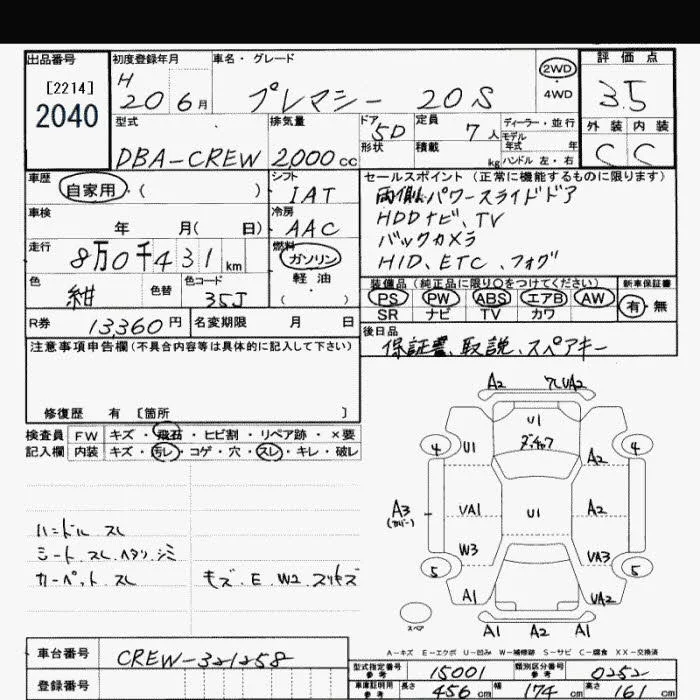 出品番号
[2214]
2040
初度登録年月
H 20 6 月
車名・グレード
プレマシー 20S
2WD
4WD
評価点
3.5
外装 内装
C C
型式
DBA-CREW
排気量
2,000 cc
ドア 5D
形状
定員 7 人
積載 kg
ディーラー・並行
モデル年式 年
ハンドル 左・右
車歴
自家用・( )
シフト
IAT
車検
年 月( 日)
冷房
AAC
走行
8万0千431 km
燃料
ガソリン
軽油・
( )
色
紺
色替
色コード
35J
R券 13360円
名変期限 月 日
セールスポイント(正常に機能するものに限ります)
両側パワースライドドア
HDDナビ、TV
バックカメラ
HID、ETC、フォグ
装備品(純正品に限り○をつけてください)
PS PW ABS エアB AW
SR ナビ TV カワ
新車保証書
有・無
後日品
保証書、取説、スペアキー
注意事項申告欄(不具合内容等は具体的に記入して下さい)
修復歴 有 〔箇所 〕
検査員 FW キズ・飛石・ヒビ割・リペア跡・×要
記入欄 内装 キズ・汚レ・コゲ・穴・スレ・キレ・破レ
ハンドル スレ
シート、スレ、ヘタリ、シミ
カーペット スレ
モズ、E、W2、スリキズ
A2
U1
4
U1
A2
4
A3
(カバー)
UA1
U1
A2
W3
UA3
5
5
A1
UA2
スペア
A1
A2
A1
A-キズ E-エクボ U-凹み W-補修跡 S-サビ C-腐食 XX-交換済
車台番号
CREW-321258
登録番号
型式指定番号
参考
15001
類別区分番号
参考
0252
車庫証明用
参考
長さ 456 cm
幅 174 cm
高さ 161 cm